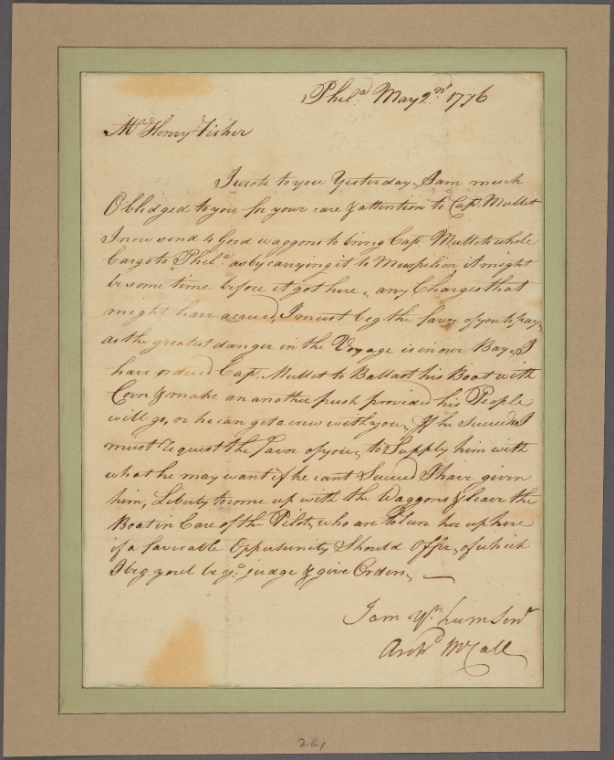 Phila. May 2nd. 1776
Mr Henry Fisher
I wrote to you Yesterday, I am much
Oblidged to you for your care & attention to Capt. Mullet
I now send 4 Good waggons to bring Capt. Mullets whole
Cargo to Phila. as by carrying it to Muspelion it might
be some time before it got here, any Charges that
might have acrued, I must beg the favor of you to pay,
as the greatest danger in the Voyage is in our Bay, I
have ordered Capt. Mullet to Ballast his Boat with
Corn & make an another push provided his People
will go, or he can get a crew with you, If he Suceeds I
must request the Favor of you, to Supply him with
what he may want if he cant Suceed I have given
him, Liberty to come up with the Waggons & leave the
Boat in Care of the Pilots, who are to run her up here
if a favorable Oppertunity Should Offer, of which
I beg youl be yr. judge & give Orders,
I am Yr. Hum Servt
Archd McCall
261